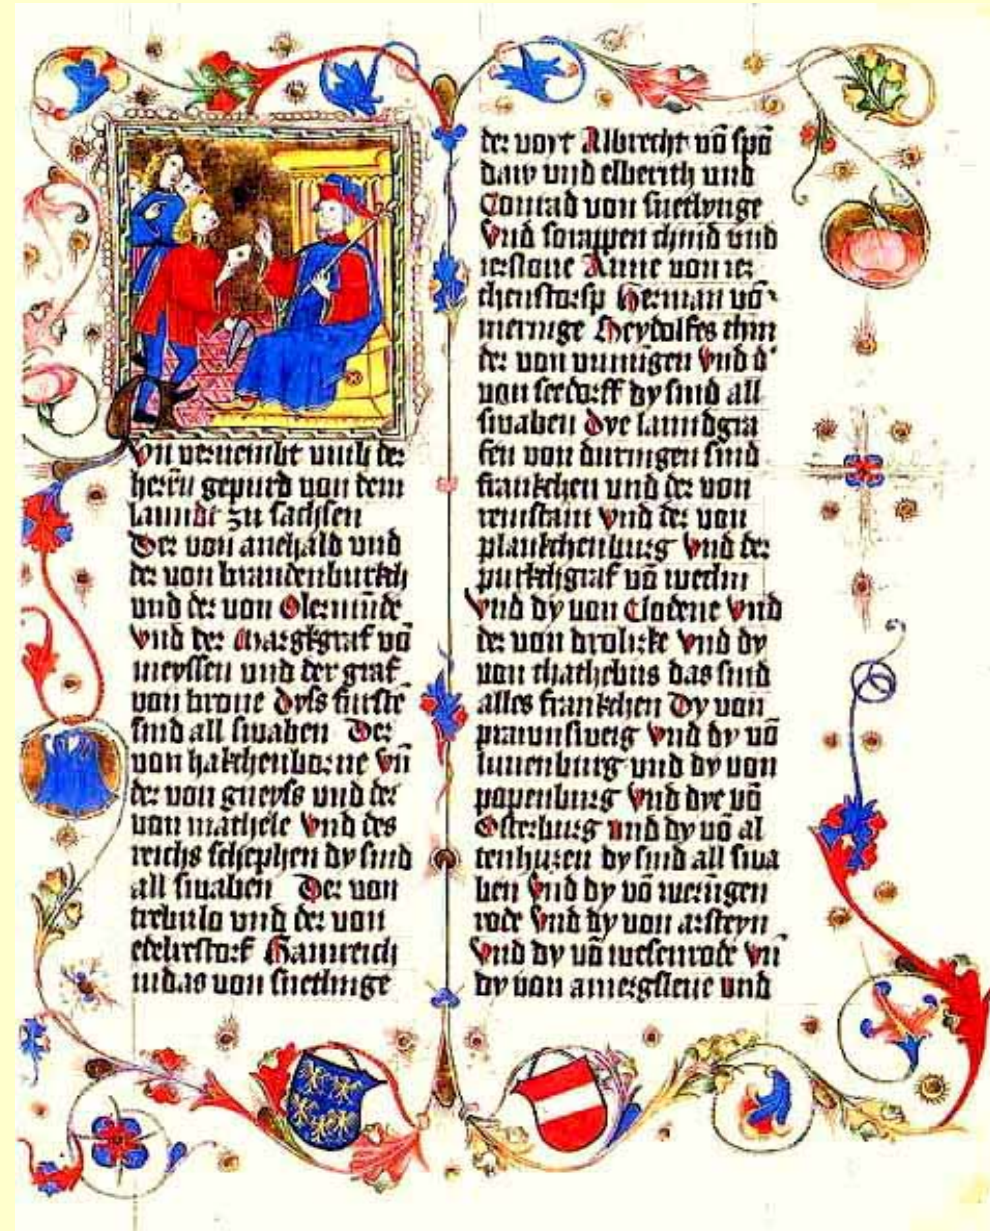 Vn vernembt umb der
herrn gepurd von dem
lanndt zu sachsen
Der von anehald und
der von brandenburkh
und der von Olermūde
Vnd der Margkgraf vō
meyssen und der graf
von brone dyss furstē
sind all swaben Der
von hakchenborne vn̄
der von gneyss und der
von mathele Vnd des
reichs schephen dy sind
all swaben Der von
trebulo und der von
edelrestorf Hannreich
iudas von snetlinge
der voyt Albrecht vō spā
daw vnd elberith und
Conrad von snetlynge
Vnd schrappen chind und
Anne von ier
chenstorsp Herman vō
meringe Heydolfes chin
der von wunigen Vnd d'
von seedorff dy sind all
swaben Dye lanndgra
fen von duringen sind
frankchen und der von
reinstain Vnd der von
plankchenburg Vnd der
purkchgraf vō wethin
Vnd dy von Clodene Vnd
der von drobizke Vnd dy
von chathebus das sind
alles frankchen Dy von
prawnsweig Vnd dy vō
lunenburg und dy von
popenburg Vnd dye vō
Osterburg und dy vō al
tenhusen dy sind all swa
ben Vnd dy vō wernigen
rode Vnd dy von arsteyn
Vnd dy vō wesenrode vn̄
dy von amergsleue und